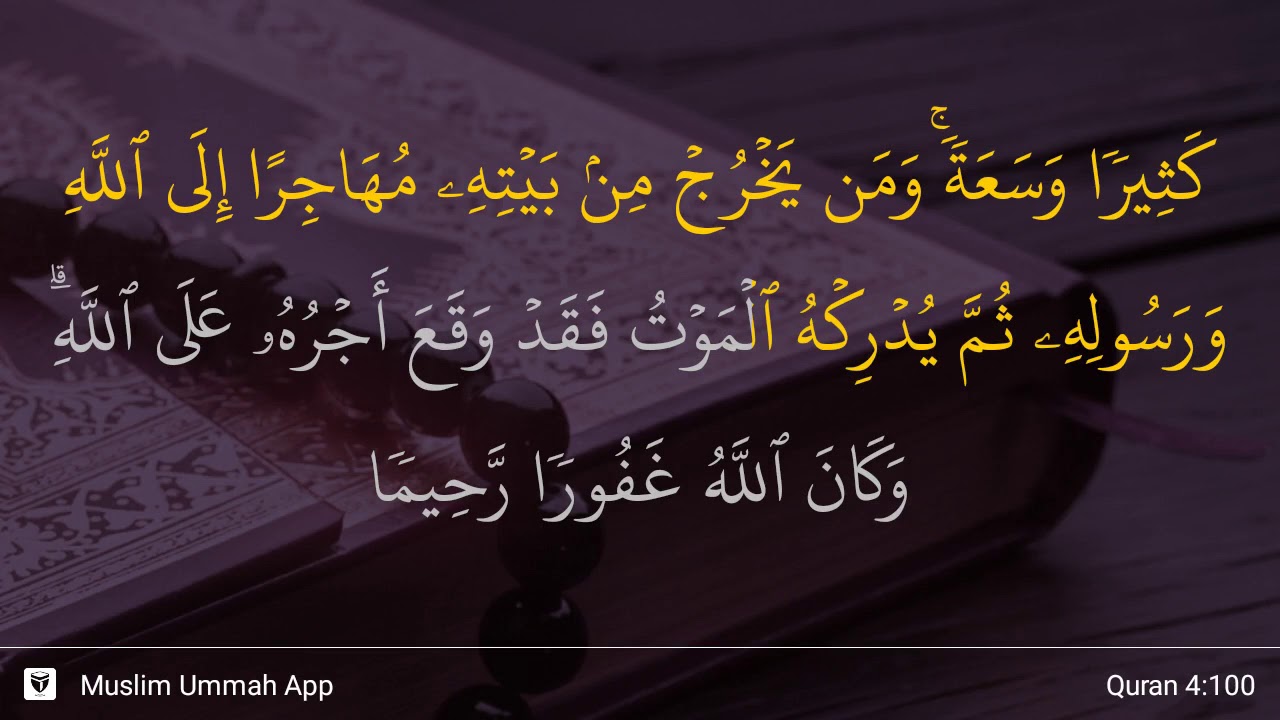 كَثِيرٗا وَسَعَةٗۚ وَمَن يَخۡرُجۡ مِنۢ بَيۡتِهِۦ مُهَاجِرًا إِلَى ٱللَّهِ
وَرَسُولِهِۦ ثُمَّ يُدۡرِكۡهُ ٱلۡمَوۡتُ فَقَدۡ وَقَعَ أَجۡرُهُۥ عَلَى ٱللَّهِۗ
وَكَانَ ٱللَّهُ غَفُورٗا رَّحِيمٗا
Muslim Ummah App
Quran 4:100